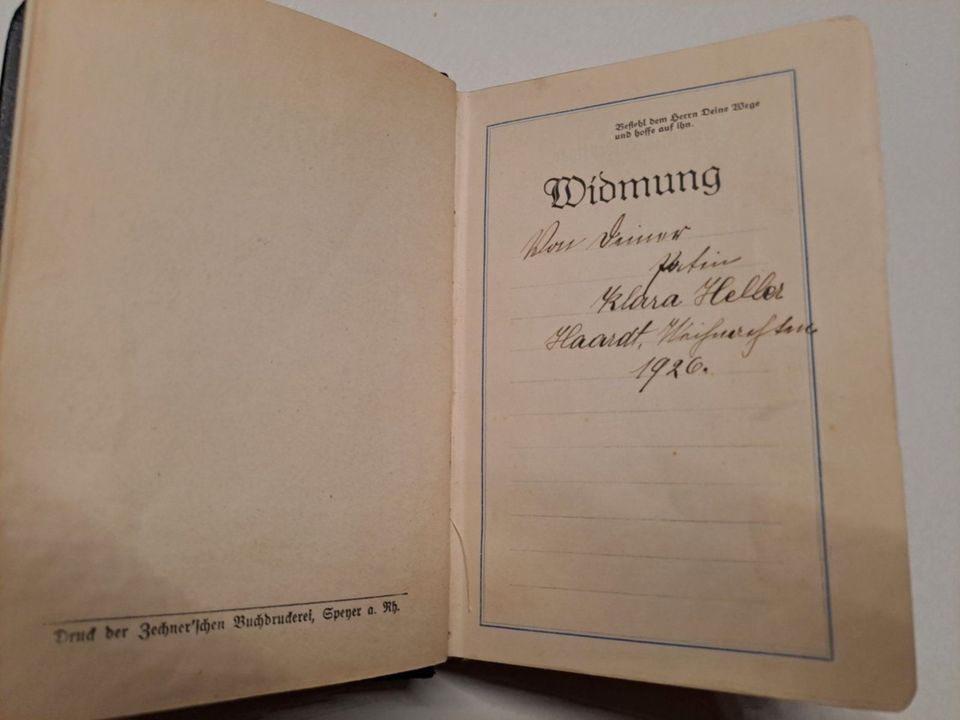 Druck der Zechner'schen Buchdruckerei, Speyer a. Rh.
Befiehl dem Herrn Deine Wege
und hoffe auf ihn.
Widmung
Von Deiner
Patin
Klara Heller
Haardt, Weihnachten
1926.